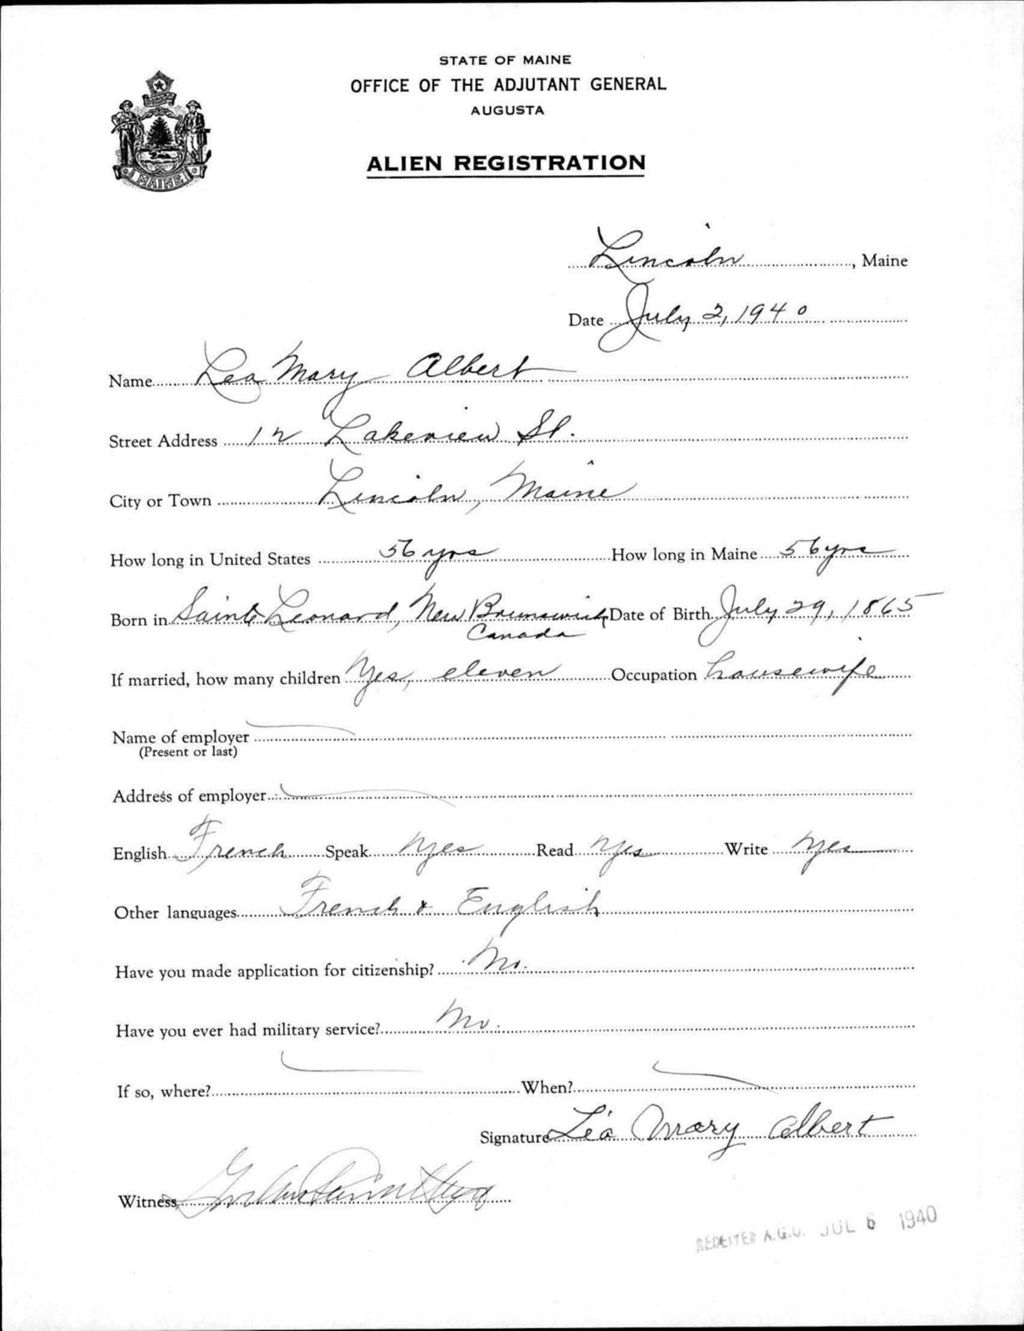 STATE OF MAINE
OFFICE OF THE ADJUTANT GENERAL
AUGUSTA
ALIEN REGISTRATION
MAINE
Lincoln, Maine
Date July 2, 1940
Name Lea Mary Albert
Street Address 12 Lakeview St.
City or Town Lincoln, Maine
How long in United States 56 yrs How long in Maine 56 yrs
Born in Saint Leonard, New Brunswick, Date of Birth July 29, 1865
Canada
If married, how many children Yes, eleven Occupation housewife
Name of employer
(Present or last)
Address of employer
English French Speak Yes Read Yes Write Yes
Other languages French & English
Have you made application for citizenship? No.
Have you ever had military service? No.
If so, where? When?
Signature Léa Mary Albert
Witness
A.G.O. JUL 6 1940